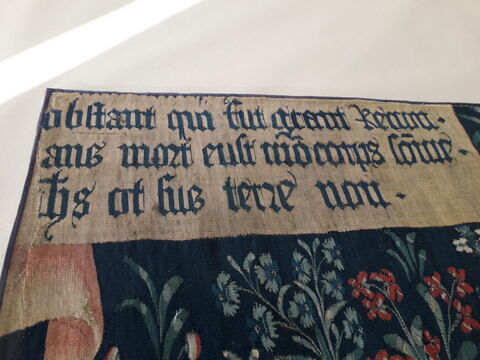 obstant qui fut grant Renom .
ans mort eust mō corps sōme .
ihs ot sus terre nom .